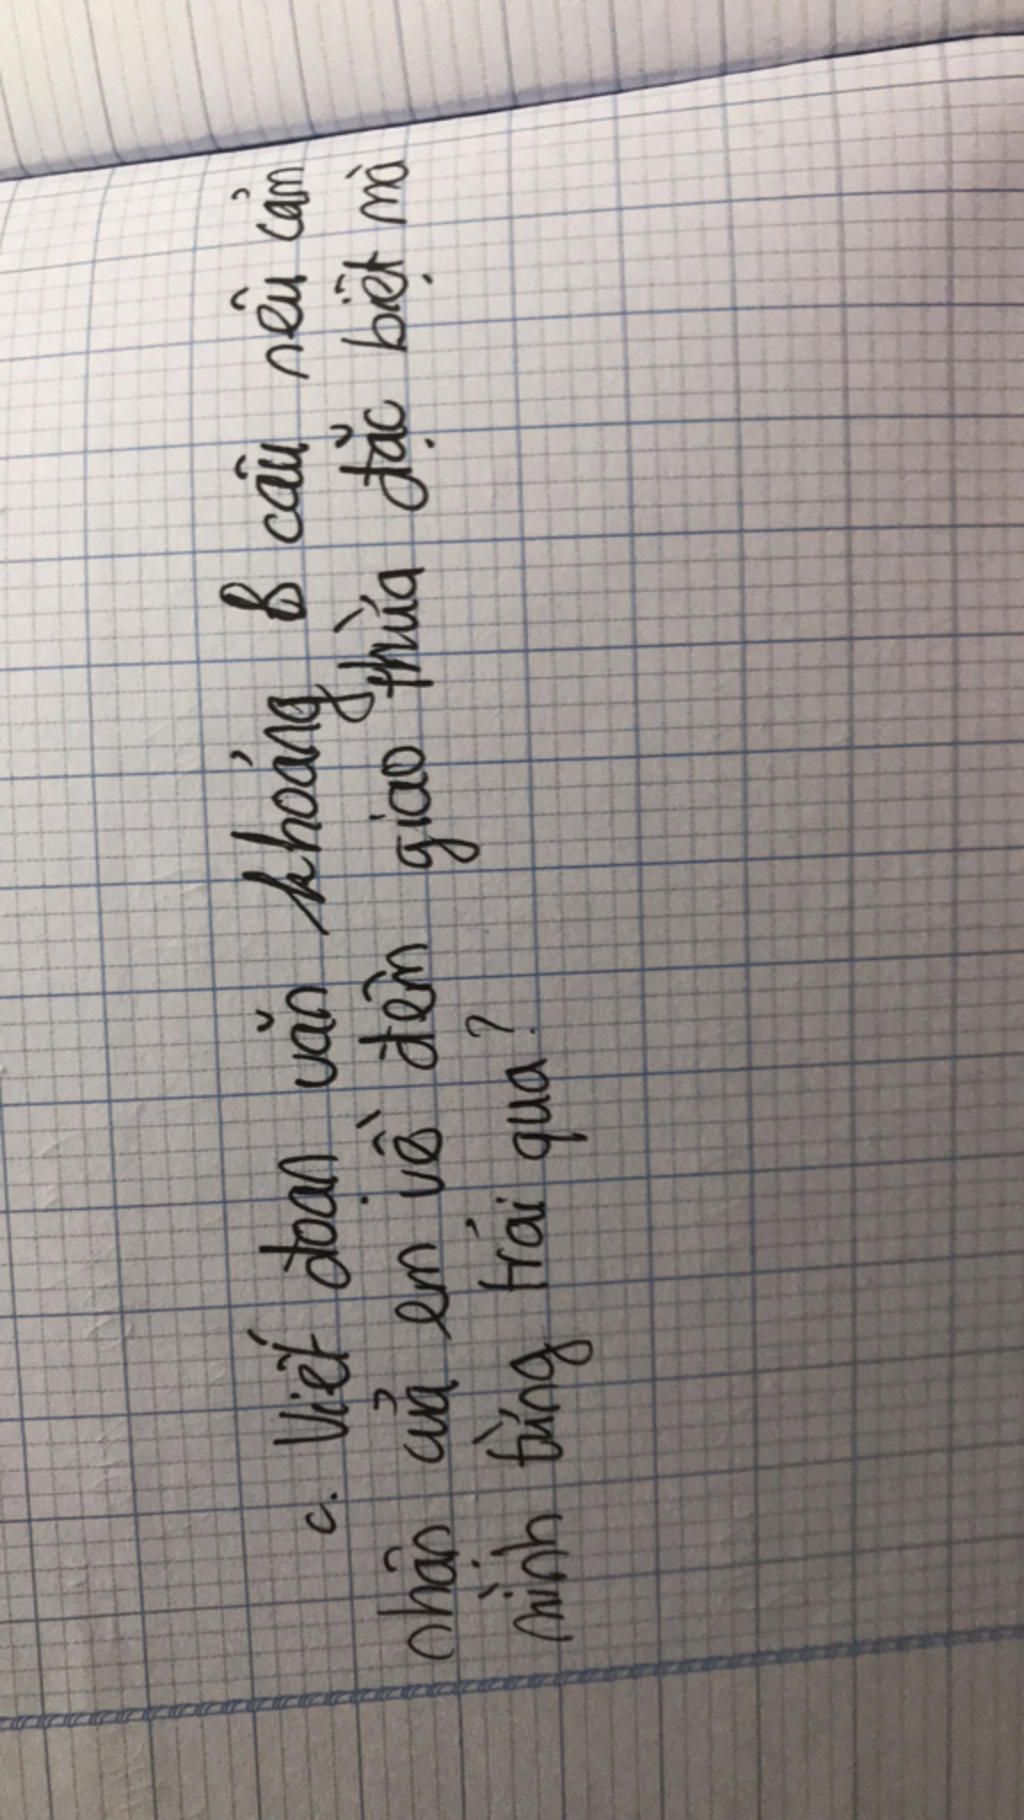 c. Viết đoạn văn khoảng 8 câu nêu cảm
nhận của em về đêm giao thừa đặc biệt mà
mình từng trải qua?